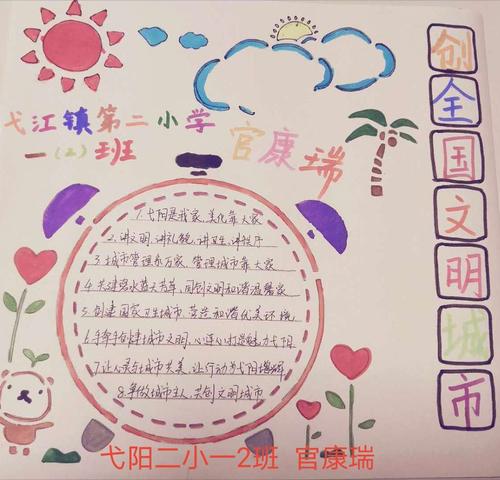 创全国文明城市
弋江镇第二小学
一（2）班
官康瑞
1.弋阳是我家，美化靠大家
2.讲文明，讲礼貌，讲卫生，讲秩序
3.城市管理系万家，管理城市靠大家
4.共建碧水蓝天书车，同创文明和谐温馨家
5.创建国家卫生城市，营造和谐优美环境
6.手牵手创建城市文明，心连心打造魅力弋阳
7.让心灵与城市共美，让行动为弋阳增辉
8.争做城市主人，共创文明城市
弋阳二小一2班 官康瑞